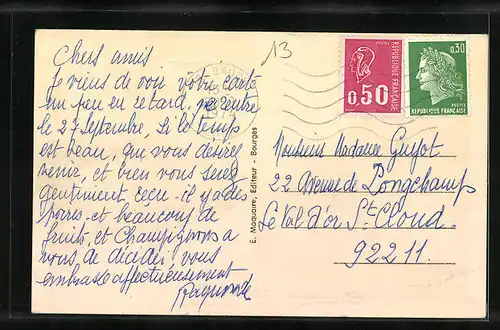 13
Chers amis
Je viens de voir votre carte
un peu en retard, je rentre
le 27 Septembre, Si le temps
est beau, que vous désirez
venir, et bien vous serez
gentiment reçu - il y a des
et beaucoup de
fruits, et Champignons a
vous de décider. vous
embrasse affectueusement
Raymonde
1974
E. Maquaire, Editeur - Bourges
RÉPUBLIQUE FRANÇAISE
0,50
0,30
POSTES
RÉPUBLIQUE FRANÇAISE
Monsieur Madame Guyot
22 Avenue de Longchamps
Le Val d'or St Cloud.
92211.